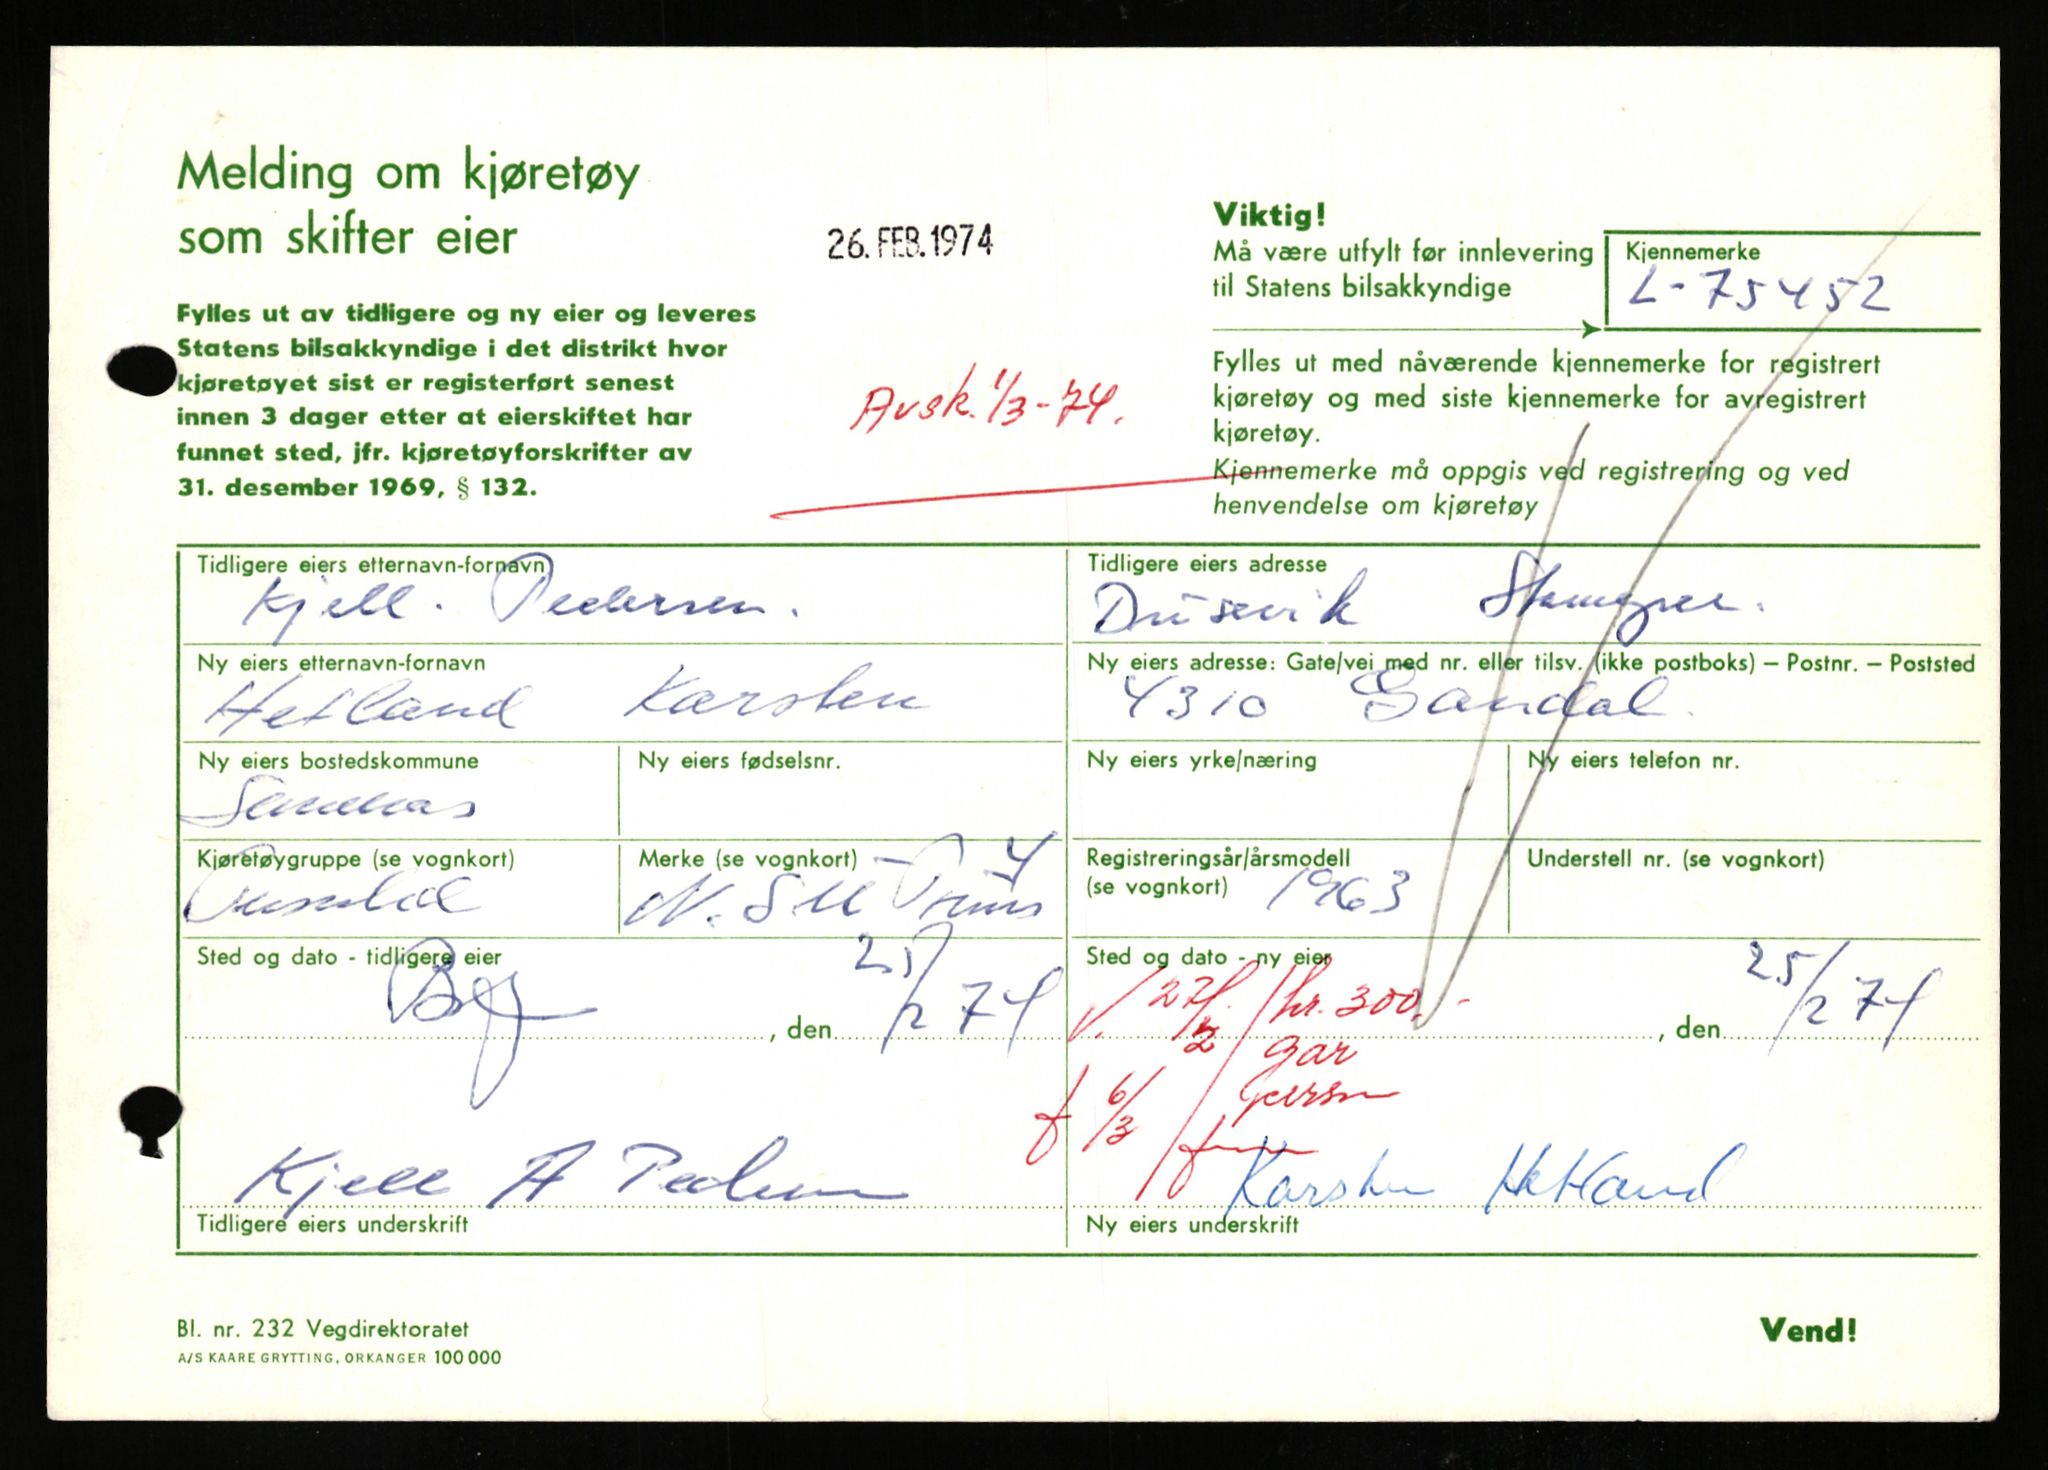 Melding om kjøretøy
som skifter eier
26. FEB. 1974
Viktig!
Må være utfylt før innlevering
til Statens bilsakkyndige
Kjennemerke
L-75452
Fylles ut av tidligere og ny eier og leveres
Statens bilsakkyndige i det distrikt hvor
kjøretøyet sist er registerført senest
innen 3 dager etter at eierskiftet har
funnet sted, jfr. kjøretøyforskrifter av
31. desember 1969, § 132.
Avsk. 1/3-74.
Fylles ut med nåværende kjennemerke for registrert
kjøretøy og med siste kjennemerke for avregistrert
kjøretøy.
Kjennemerke må oppgis ved registrering og ved
henvendelse om kjøretøy
Tidligere eiers etternavn-fornavn
Kjell. Pedersen.
Tidligere eiers adresse
Dusevik
Ny eiers etternavn-fornavn
Hetland Karsten
Ny eiers adresse: Gate/vei med nr. eller tilsv. (ikke postboks) – Postnr. – Poststed
4310 Gandal.
Ny eiers bostedskommune
Sandnes
Ny eiers fødselsnr.
Ny eiers yrke/næring
Ny eiers telefon nr.
Kjøretøygruppe (se vognkort)
Personbil
Merke (se vognkort)
N.S.U Prins 4
Registreringsår/årsmodell
(se vognkort)
1963
Understell nr. (se vognkort)
Sted og dato - tidligere eier
, den 25/2 74
Sted og dato - ny eier
, den 25/2 74
27/2 / kr. 300.-
6/3
Kjell A Pedersen
Tidligere eiers underskrift
Karsten Hetland
Ny eiers underskrift
Bl. nr. 232 Vegdirektoratet
A/S KAARE GRYTTING, ORKANGER 100 000
Vend!